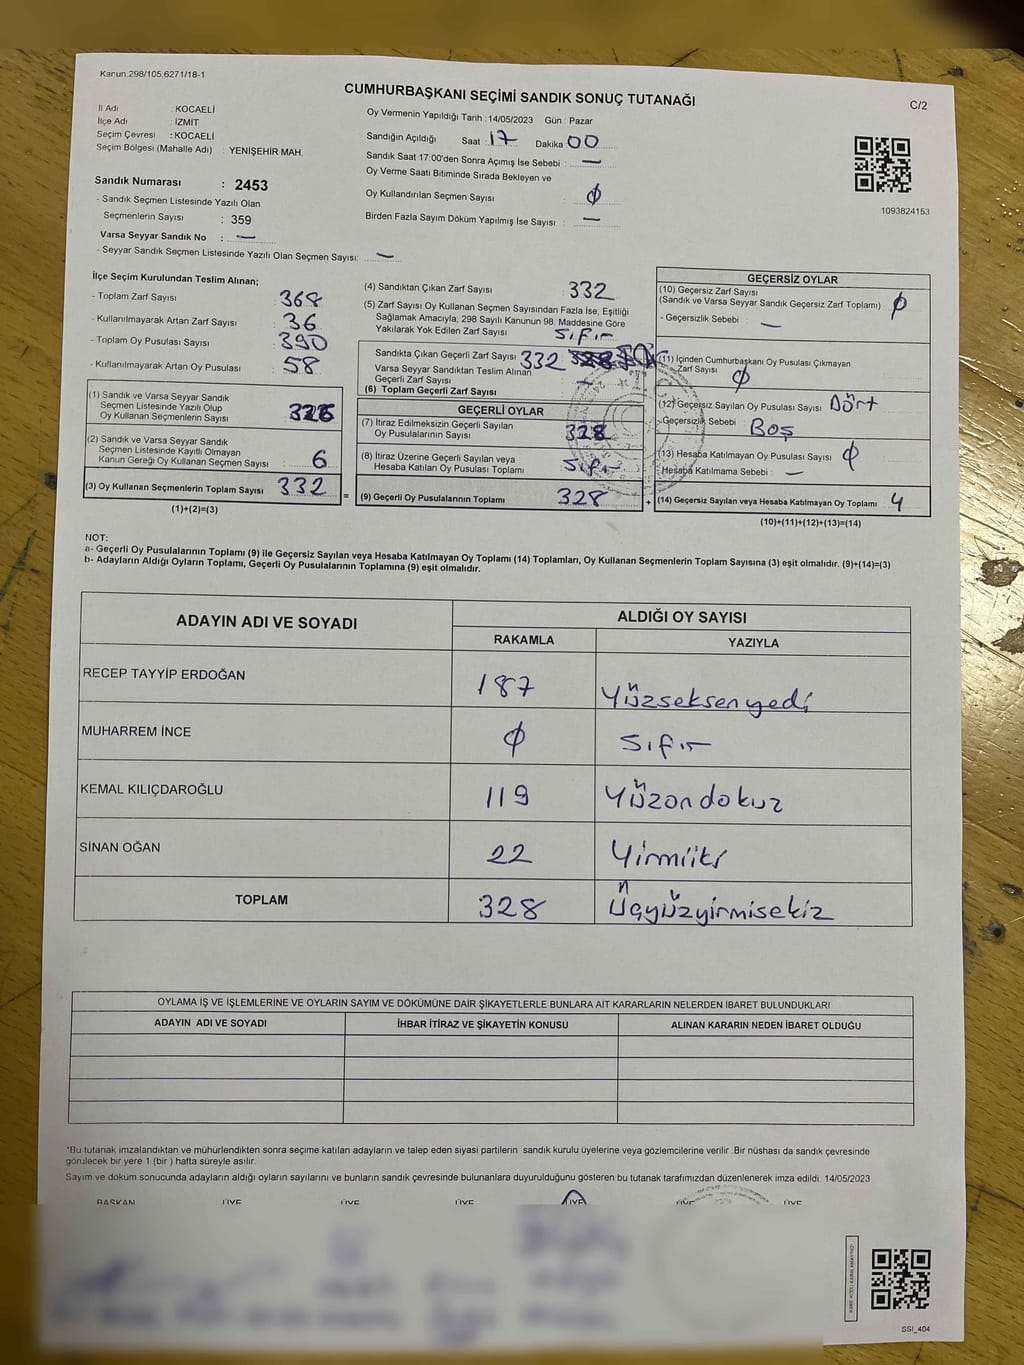 Kanun:298/105,6271/18-1
CUMHURBAŞKANI SEÇİMİ SANDIK SONUÇ TUTANAĞI
C/2
İl Adı : KOCAELİ
İlçe Adı : İZMİT
Seçim Çevresi : KOCAELİ
Seçim Bölgesi (Mahalle Adı) : YENİŞEHİR MAH.
Sandık Numarası : 2453
- Sandık Seçmen Listesinde Yazılı Olan
Seçmenlerin Sayısı : 359
Varsa Seyyar Sandık No : —
- Seyyar Sandık Seçmen Listesinde Yazılı Olan Seçmen Sayısı: —
Oy Vermenin Yapıldığı Tarih :14/05/2023 Gün : Pazar
Sandığın Açıldığı Saat : 17 Dakika 00
Sandık Saat 17:00'den Sonra Açımış İse Sebebi : —
Oy Verme Saati Bitiminde Sırada Bekleyen ve
Oy Kullandırılan Seçmen Sayısı : Ø
Birden Fazla Sayım Döküm Yapılmış İse Sayısı : —
1093824153
İlçe Seçim Kurulundan Teslim Alınan;
- Toplam Zarf Sayısı : 368
- Kullanılmayarak Artan Zarf Sayısı : 36
- Toplam Oy Pusulası Sayısı : 390
- Kullanılmayarak Artan Oy Pusulası : 58
(1) Sandık ve Varsa Seyyar Sandık
Seçmen Listesinde Yazılı Olup
Oy Kullanan Seçmenlerin Sayısı : 326
(2) Sandık ve Varsa Seyyar Sandık
Seçmen Listesinde Kayıtlı Olmayan
Kanun Gereği Oy Kullanan Seçmen Sayısı : 6
(3) Oy Kullanan Seçmenlerin Toplam Sayısı : 332
(1)+(2)=(3)
=
(4) Sandıktan Çıkan Zarf Sayısı : 332
(5) Zarf Sayısı Oy Kullanan Seçmen Sayısından Fazla İse, Eşitliği
Sağlamak Amacıyla, 298 Sayılı Kanunun 98. Maddesine Göre
Yakılarak Yok Edilen Zarf Sayısı : Sıfır
Sandıkta Çıkan Geçerli Zarf Sayısı : 332
Varsa Seyyar Sandıktan Teslim Alınan
Geçerli Zarf Sayısı : —
(6) Toplam Geçerli Zarf Sayısı
GEÇERLİ OYLAR
(7) İtiraz Edilmeksizin Geçerli Sayılan
Oy Pusulalarının Sayısı : 328
(8) İtiraz Üzerine Geçerli Sayılan veya
Hesaba Katılan Oy Pusulası Toplamı : Sıfır
(9) Geçerli Oy Pusulalarının Toplamı : 328
+
GEÇERSİZ OYLAR
(10) Geçersiz Zarf Sayısı
(Sandık ve Varsa Seyyar Sandık Geçersiz Zarf Toplamı) : Ø
- Geçersizlik Sebebi : —
(11) İçinden Cumhurbaşkanı Oy Pusulası Çıkmayan
Zarf Sayısı : Ø
(12) Geçersiz Sayılan Oy Pusulası Sayısı : Dört
-Geçersizlik Sebebi : Boş
(13) Hesaba Katılmayan Oy Pusulası Sayısı : Ø
Hesaba Katılmama Sebebi : —
(14) Geçersiz Sayılan veya Hesaba Katılmayan Oy Toplamı : 4
(10)+(11)+(12)+(13)=(14)
NOT:
a- Geçerli Oy Pusulalarının Toplamı (9) ile Geçersiz Sayılan veya Hesaba Katılmayan Oy Toplamı (14) Toplamları, Oy Kullanan Seçmenlerin Toplam Sayısına (3) eşit olmalıdır. (9)+(14)=(3)
b- Adayların Aldığı Oyların Toplamı, Geçerli Oy Pusulalarının Toplamına (9) eşit olmalıdır.
ADAYIN ADI VE SOYADI
ALDIĞI OY SAYISI
RAKAMLA YAZIYLA
RECEP TAYYİP ERDOĞAN 187 Yüzseksenyedi
MUHARREM İNCE Ø Sıfır
KEMAL KILIÇDAROĞLU 119 Yüzondokuz
SİNAN OĞAN 22 Yirmiiki
TOPLAM 328 Üçyüzyirmisekiz
OYLAMA İŞ VE İŞLEMLERİNE VE OYLARIN SAYIM VE DÖKÜMÜNE DAİR ŞİKAYETLERLE BUNLARA AİT KARARLARIN NELERDEN İBARET BULUNDUKLARI
ADAYIN ADI VE SOYADI İHBAR İTİRAZ VE ŞİKAYETİN KONUSU ALINAN KARARIN NEDEN İBARET OLDUĞU
*Bu tutanak imzalandıktan ve mühürlendikten sonra seçime katılan adayların ve talep eden siyasi partilerin sandık kurulu üyelerine veya gözlemcilerine verilir .Bir nüshası da sandık çevresinde
görülecek bir yere 1 (bir ) hafta süreyle asılır.
Sayım ve döküm sonucunda adayların aldığı oyların sayılarını ve bunların sandık çevresinde bulunanlara duyurulduğunu gösteren bu tutanak tarafımızdan düzenlenerek imza edildi. 14/05/2023
BAŞKAN ÜYE ÜYE ÜYE ÜYE ÜYE ÜYE
SSI_404